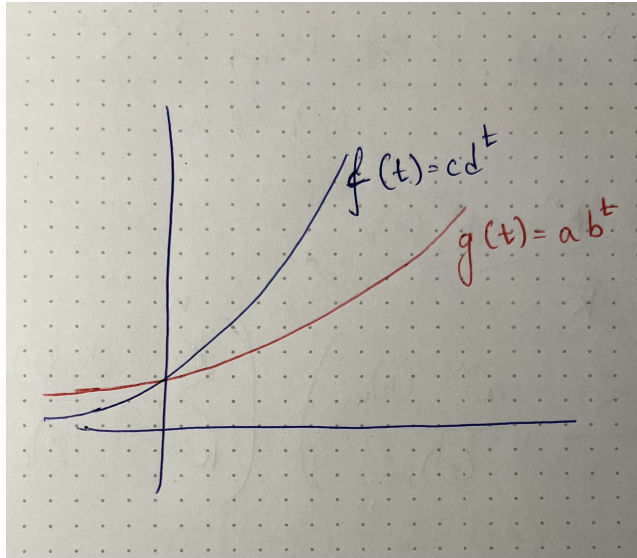 f(t)=cd^t
g(t)=ab^t